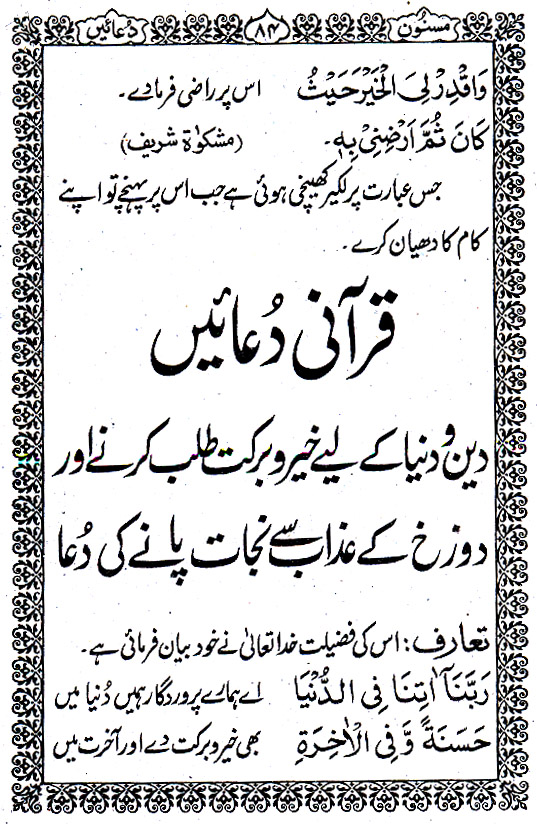 مسنون ۸۴ دُعائیں
وَاقْدِرْ لِیَ الْخَیْرَ حَیْثُ اس پر راضی فرما دے۔
کَانَ ثُمَّ اَرْضِنِیْ بِہٖ۔ (مشکوٰۃ شریف)
جس عبارت پر لکیر کھینچی ہوئی ہے جب اس پر پہنچے تو اپنے
کام کا دھیان کرے۔
قرآنی دُعائیں
دین و دنیا کے لیے خیر و برکت طلب کرنے اور
دوزخ کے عذاب سے نجات پانے کی دُعا
تعارف: اس کی فضیلت خدا تعالیٰ نے خود بیان فرمائی ہے۔
رَبَّنَآ اٰتِنَا فِی الدُّنْیَا اے ہمارے پروردگار ہمیں دُنیا میں
حَسَنَۃً وَّ فِی الْاٰخِرَۃِ بھی خیر و برکت دے اور آخرت میں